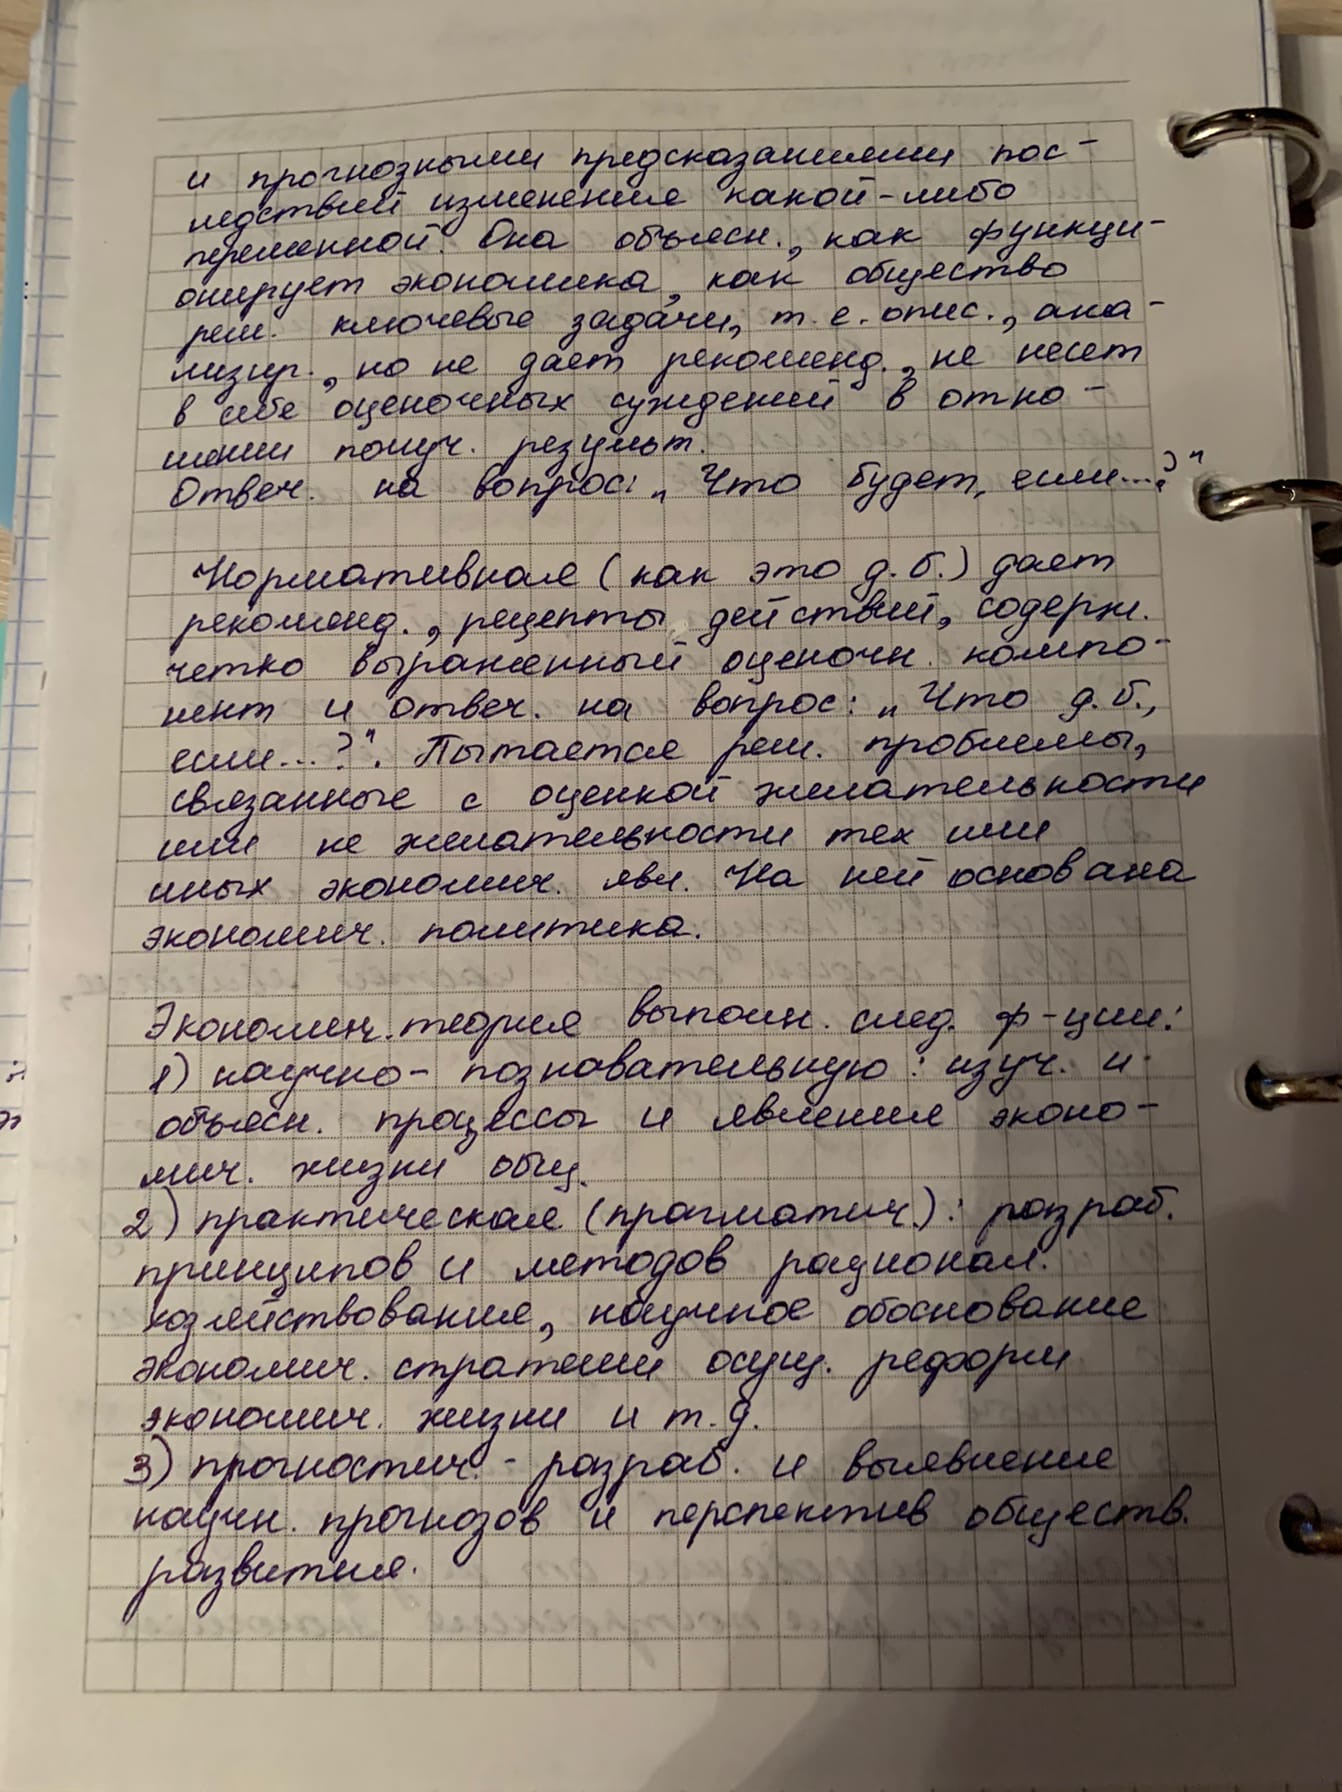 и прогнозными предсказаниями пос-
ледствий изменения какой-либо
переменной. Она объясн., как функци-
онирует экономика, как общество
реш. ключевые задачи, т.е. опис., ана-
лизир., но не дает рекоменд., не несет
в себе оценочных суждений в отно-
шении получ. результ.
Отвеч. на вопрос: „Что будет, если...?"
Нормативная (как это д.б.) дает
рекоменд., рецепты действий, содерж.
четко выраженный оценочн. компо-
нент и отвеч. на вопрос: „Что д.б.,
если...?". Пытается реш. проблемы,
связанные с оценкой желательности
или не желательности тех или
иных экономич. явл. На ней основана
экономич. политика.
Экономич. теория выполн. след. ф-ции:
1) научно-познавательную: изуч. и
объясн. процессы и явления эконо-
мич. жизни общ.
2) практическая (прагматич.): разраб.
принципов и методов рационал.
хозяйствования, научное обоснование
экономич. стратегии осущ. реформ
экономич. жизни и т.д.
3) прогностич. - разраб. и выявление
научн. прогнозов и перспектив обществ.
развития.